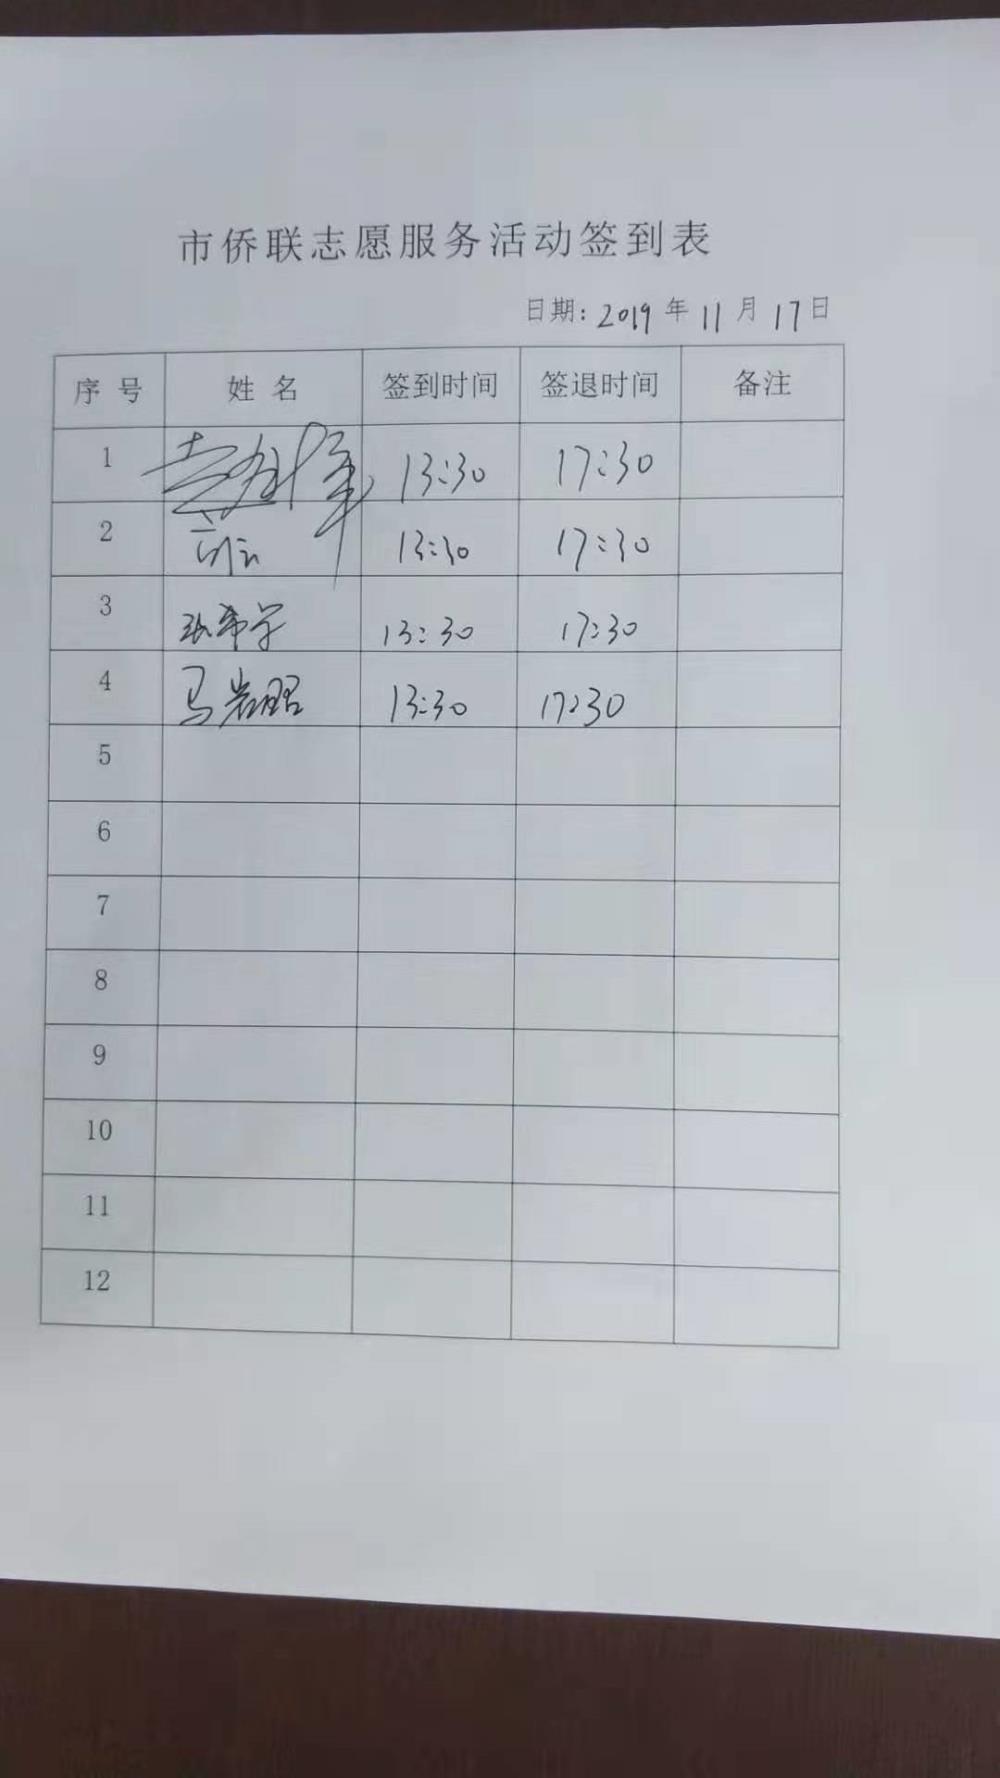 市侨联志愿服务活动签到表
日期: 2019 年 11 月 17 日
序号 姓名 签到时间 签退时间 备注
1 13:30 17:30
2 13:30 17:30
3 13:30 17:30
4 马岩昭 13:30 17:30
5
6
7
8
9
10
11
12